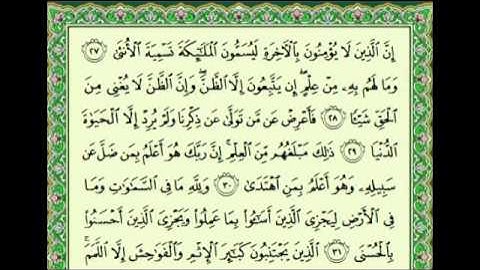 إِنَّ الَّذِينَ لَا يُؤْمِنُونَ بِالْآخِرَةِ لَيُسَمُّونَ الْمَلَائِكَةَ تَسْمِيَةَ الْأُنثَىٰ ٢٧
وَمَا لَهُم بِهِ مِنْ عِلْمٍ إِن يَتَّبِعُونَ إِلَّا الظَّنَّ وَإِنَّ الظَّنَّ لَا يُغْنِي مِنَ
الْحَقِّ شَيْئًا ٢٨ فَأَعْرِضْ عَن مَّن تَوَلَّىٰ عَن ذِكْرِنَا وَلَمْ يُرِدْ إِلَّا الْحَيَوٰةَ
الدُّنْيَا ٢٩ ذَٰلِكَ مَبْلَغُهُم مِّنَ الْعِلْمِ إِنَّ رَبَّكَ هُوَ أَعْلَمُ بِمَن ضَلَّ عَن
سَبِيلِهِ وَهُوَ أَعْلَمُ بِمَنِ اهْتَدَىٰ ٣٠ وَلِلَّهِ مَا فِي السَّمَٰوَٰتِ وَمَا
فِي الْأَرْضِ لِيَجْزِيَ الَّذِينَ أَسَٰٓـُٔوا بِمَا عَمِلُوا وَيَجْزِيَ الَّذِينَ أَحْسَنُوا
بِالْحُسْنَى ٣١ الَّذِينَ يَجْتَنِبُونَ كَبَٰٓئِرَ الْإِثْمِ وَالْفَوَٰحِشَ إِلَّا اللَّمَمَ